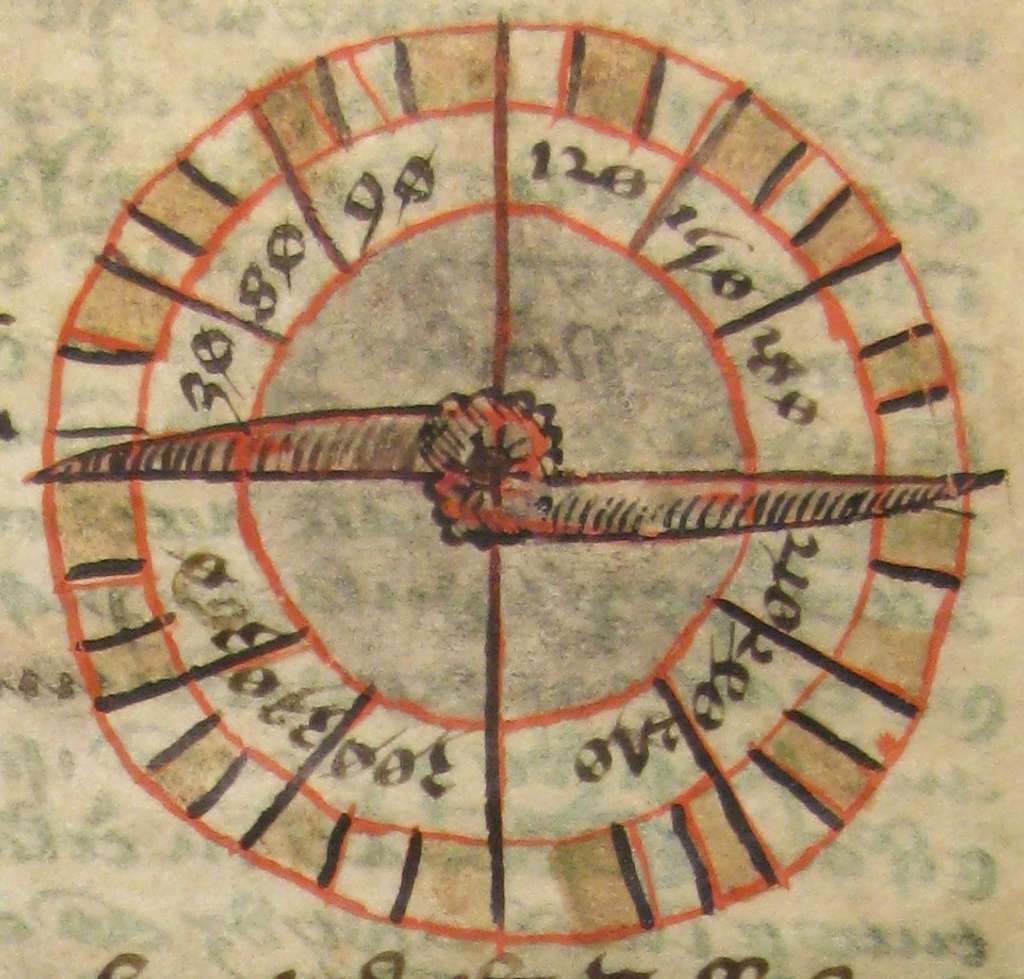 30
90
120
150
180
210
240
270
300
330